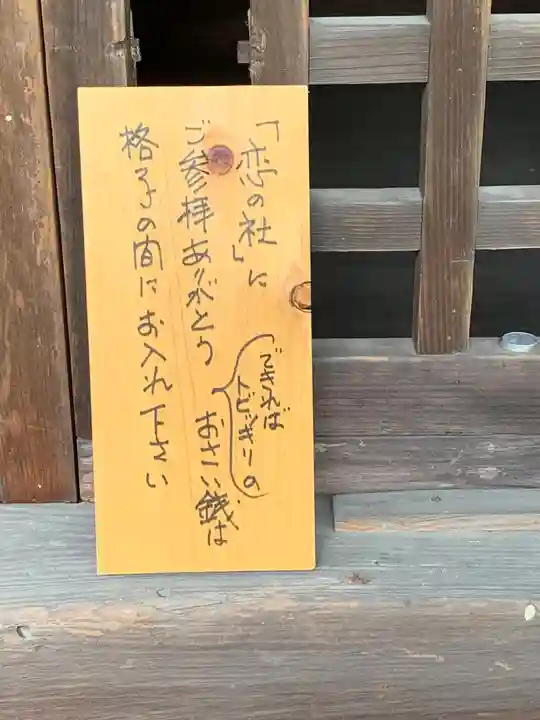 「恋の社」に
ご参拝ありがとう
(できれば
トビッキリの
おさい銭は
格子の間にお入れ下さい